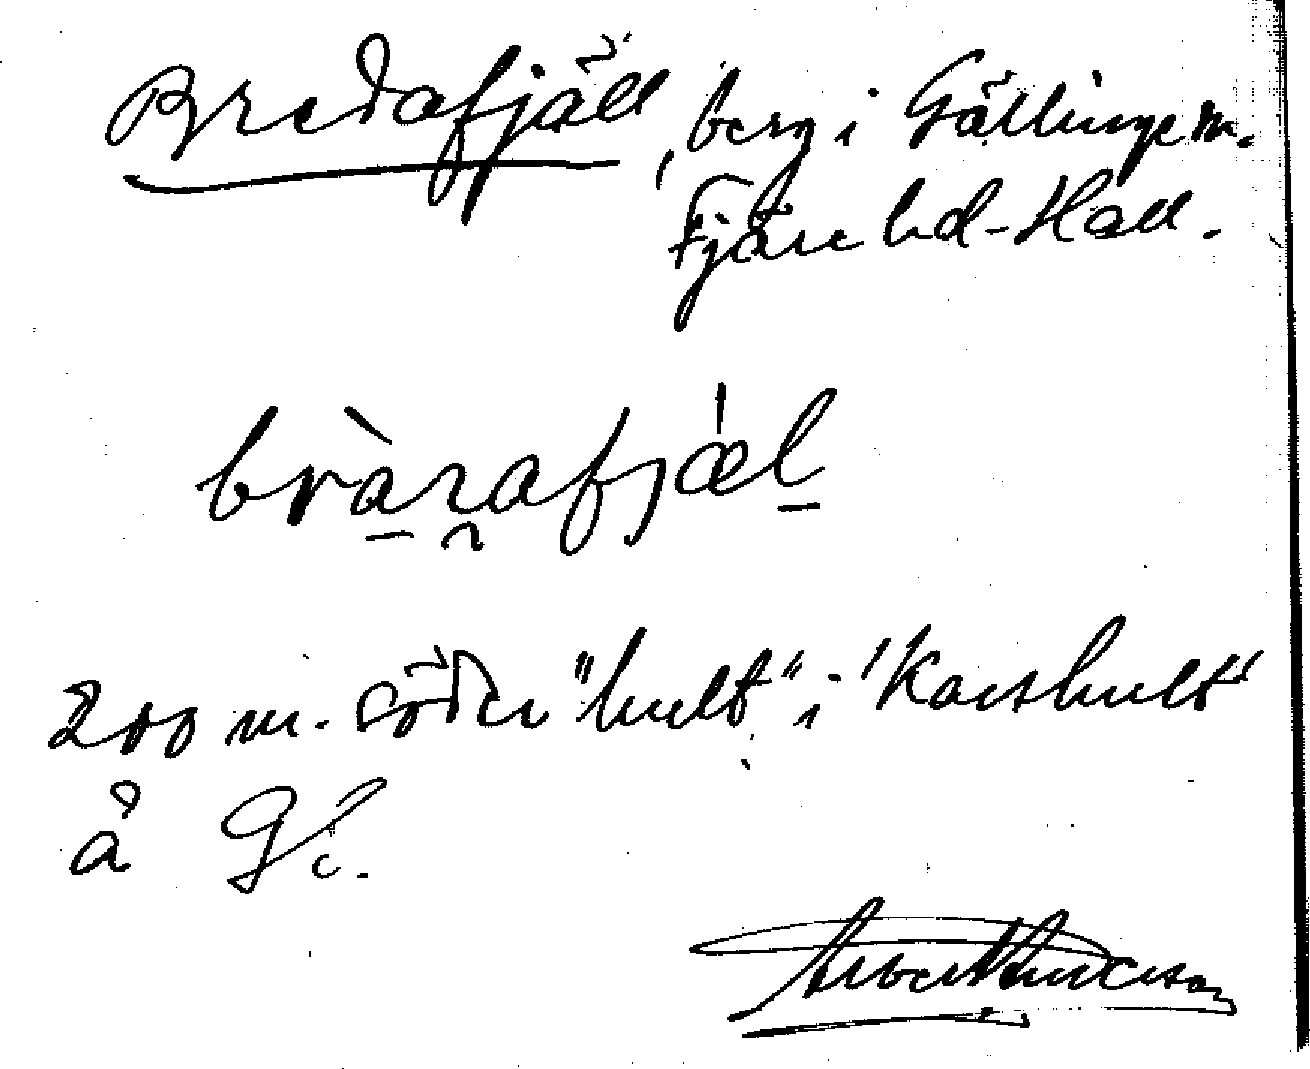 Bredafjäll, berg i Gällinge sn.
Fjäre hd - Hall.
bràrafjǽl
200 m. söder "hult" i "Karshult"
å
Albert Andersson